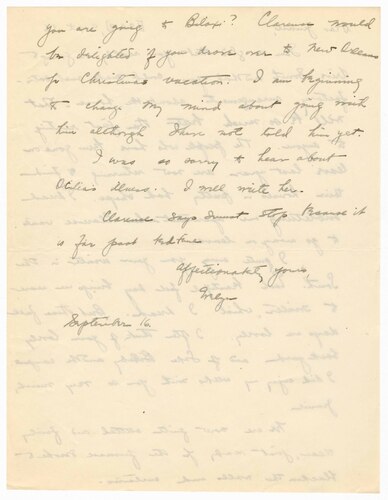 you are going to Biloxi? Clarence would
be delighted if you drove over to New Orleans
for Christmas vacation. I am beginning
to change my mind about going with
him although I have not told him yet.
I was so sorry to hear about
illness. I will write her.
Clarence says I must stop because it
is far past bedtime
Affectionately yours,
September 16.